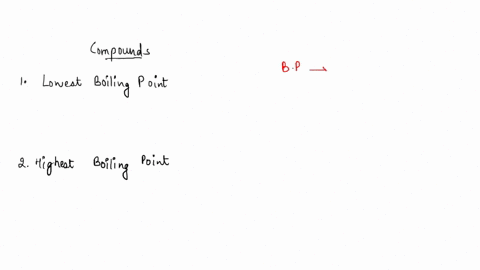 Compounds
1. Lowest Boiling Point
B.P →
2. Highest Boiling Point